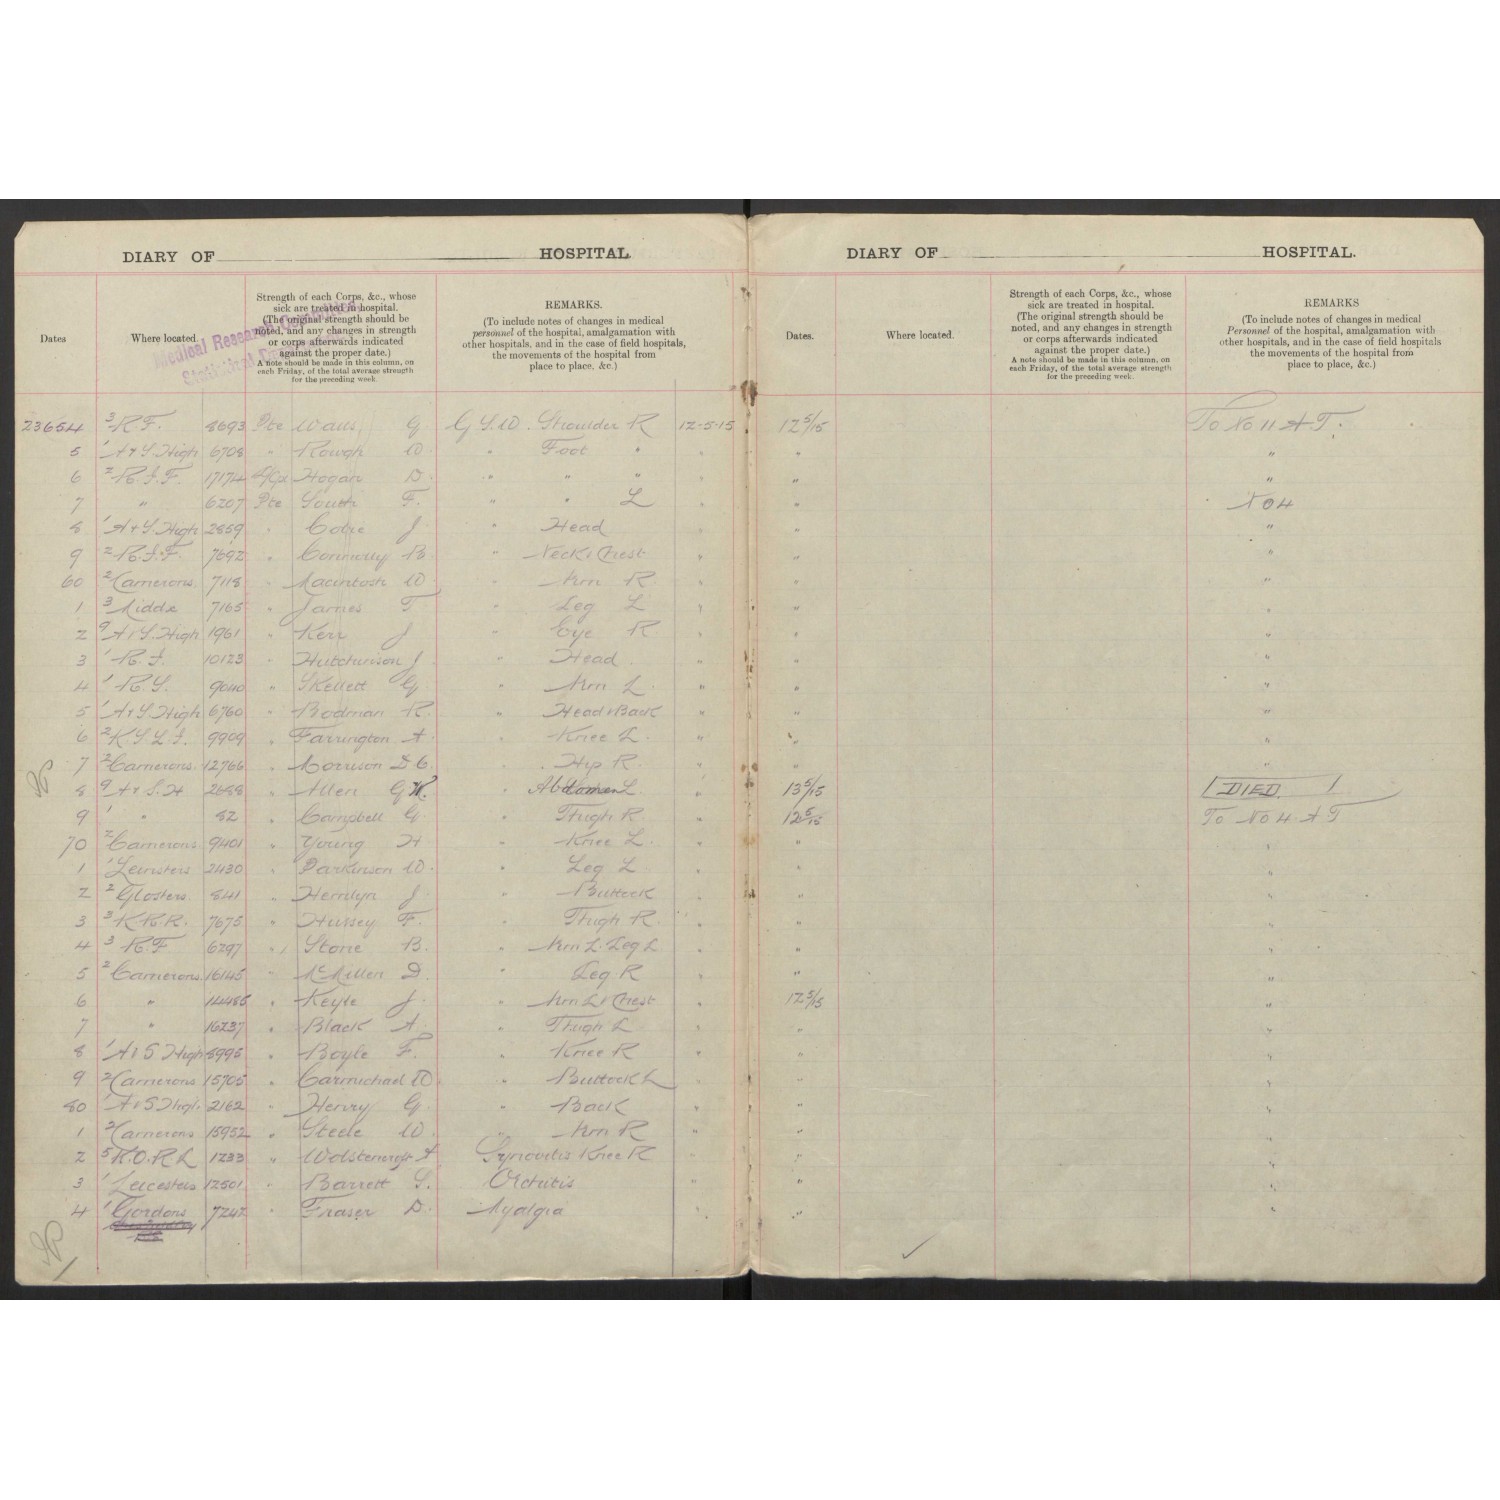 DIARY OF HOSPITAL.
Dates
Where located.
Strength of each Corps, &c., whose
sick are treated in hospital.
(The original strength should be
noted, and any changes in strength
or corps afterwards indicated
against the proper date.)
A note should be made in this column, on
each Friday, of the total average strength
for the preceding week.
REMARKS.
(To include notes of changes in medical
personnel of the hospital, amalgamation with
other hospitals, and in the case of field hospitals,
the movements of the hospital from
place to place. &c.)
Medical Research
DIARY OF HOSPITAL.
Dates.
Where located.
Strength of each Corps, &c., whose
sick are treated in hospital.
(The original strength should be
noted, and any changes in strength
or corps afterwards indicated
against the proper date.)
A note should be made in this column, on
each Friday, of the total average strength
for the preceding week.
REMARKS
(To include notes of changes in medical
Personnel of the hospital, amalgamation with
other hospitals, and in the case of field hospitals
the movements of the hospital from
place to place, &c.)
23654 3 R F. 8693 Pte Watts G G.S.W. Shoulder R 12-5-15 12 5/15 To No 11 A T.
5 1 A & S. High 6708 " Rough W " Foot " " " "
6 2 R.I.F. 17174 Hogan D " " " " " "
7 " 6207 Pte South F. " " L " " No 4
8 1 A & S. High 2859 " J " Head " " "
9 2 R.I.F. 7692 " Connolly B " Neck & Chest " " "
60 2 Camerons 7118 " Macintosh W " Arm R " " "
1 3 Middx 7165 " James T " Leg L " " "
2 9 A & S. High 1961 " Kerr J " Eye R " " "
3 1 R.I. 10123 " Hutchinson J " Head " " "
4 1 R.S. 9040 " Skellett G " Arm L " " "
5 1 A & S. High 6760 " Bodman R " Head & Back " " "
6 2 K.S.L.I. 9909 " Farrington A " Knee L. " " "
7 2 Camerons 12766 " Morrison D C " Hip R " " "
8 9 A & S. H 2688 " Allen G " Abdomen L. " 13 5/15 DIED.
9 1 " 82 " Campbell G " Thigh R. " 12 5/15 To No 4 A T
70 2 Camerons 9401 " Young H " Knee L. " " "
1 1 Leinsters 2430 " Parkinson W " Leg L " " "
2 2 Glosters 841 " Hemlyn J " Buttock " " "
3 3 K.R.R. 7675 " Hussey F. " Thigh R. " " "
4 3 R.F. 6297 " Stone B. " Arm L. Leg L " " "
5 2 Camerons 16145 " McMillen D. " Leg R " " "
6 " 14485 " Keyle J " Arm L & Chest " 12 5/15 "
7 " 16237 " Black A " Thigh L " " "
8 1 A & S High 8995 " Boyle F. " Knee R " " "
9 2 Camerons 15705 " Carmichael W " Buttock L " " "
80 1 A & S High. 2162 " Henry G " Back " " "
1 2 Camerons 15952 " Steele W " Arm R " " "
2 5 K.O.R.L 1233 " Wolstencroft A Synovitis Knee R " " "
3 1 Leicesters 12501 " Barrett S. Orchitis " " "
4 1 Gordons 7242 " Fraser D. Myalgia " " "